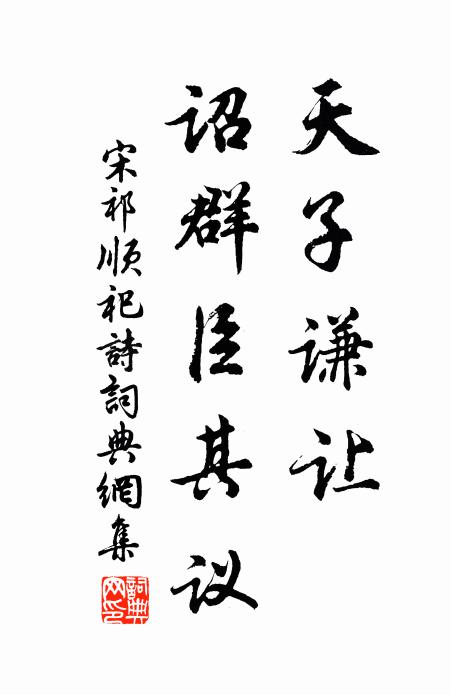 天子谦让
诏群臣其议
宋祁顺祀詩詞典網集
詞典网印